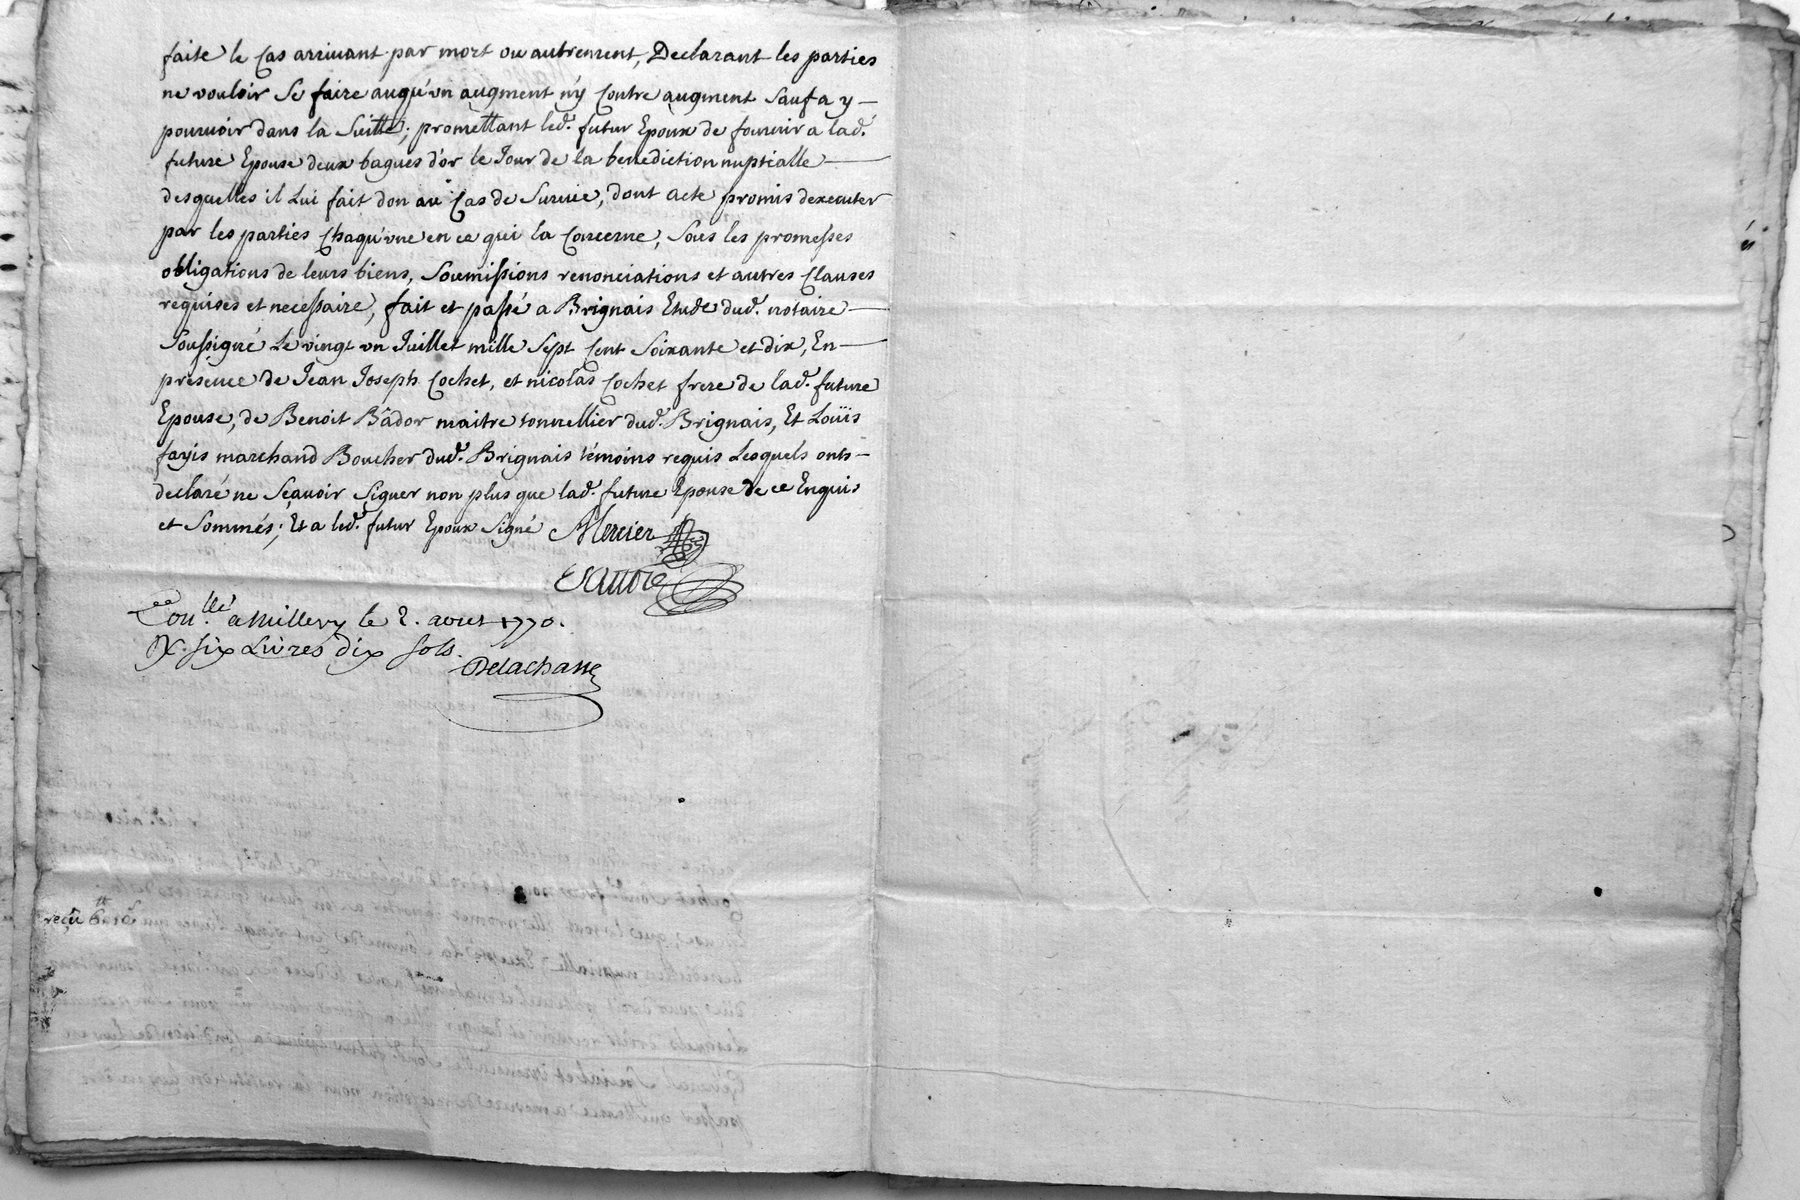 faite le Cas arrivant par mort ou autrement, Declarant les parties
ne vouloir Se faire auqu'un augment n'y Contre augment Sauf a y —
pourvoir dans la Suitte; promettant led. futur Epoux de fournir a lad.
future Epouse deux bagues d'or le Jour de la benediction nuptialle —
desquelles il Lui fait don au Cas de Survie, dont acte promis dexecuter
par les parties Chaqu'une en ce qui la Concerne, Sous les promesses
obligations de leurs biens, Soumissions renonciations et autres Clauses
requises et necessaire, fait et passé a Brignais Etude dud. notaire —
Soussigné Le vingt un Juillet mille Sept Cent Soixante et dix, En —
presence de Jean Joseph Cochet, et nicolas Cochet frere de lad. future
Epouse, de Benoit Bâdor maitre tonnellier dud. Brignais, Et Loüis
fayis marchand Boucher dud. Brignais témoins requis Lesquels onts —
declaré ne Sçavoir Signer non plus que lad. future Epouse de ce Enquis
et Sommés; Et a led. futur Epoux Signé Mercier
Con.llé a Millery le 2. aout 1770.
R. six Livres dix sols.
Delachasse
reçu 6lt 10s